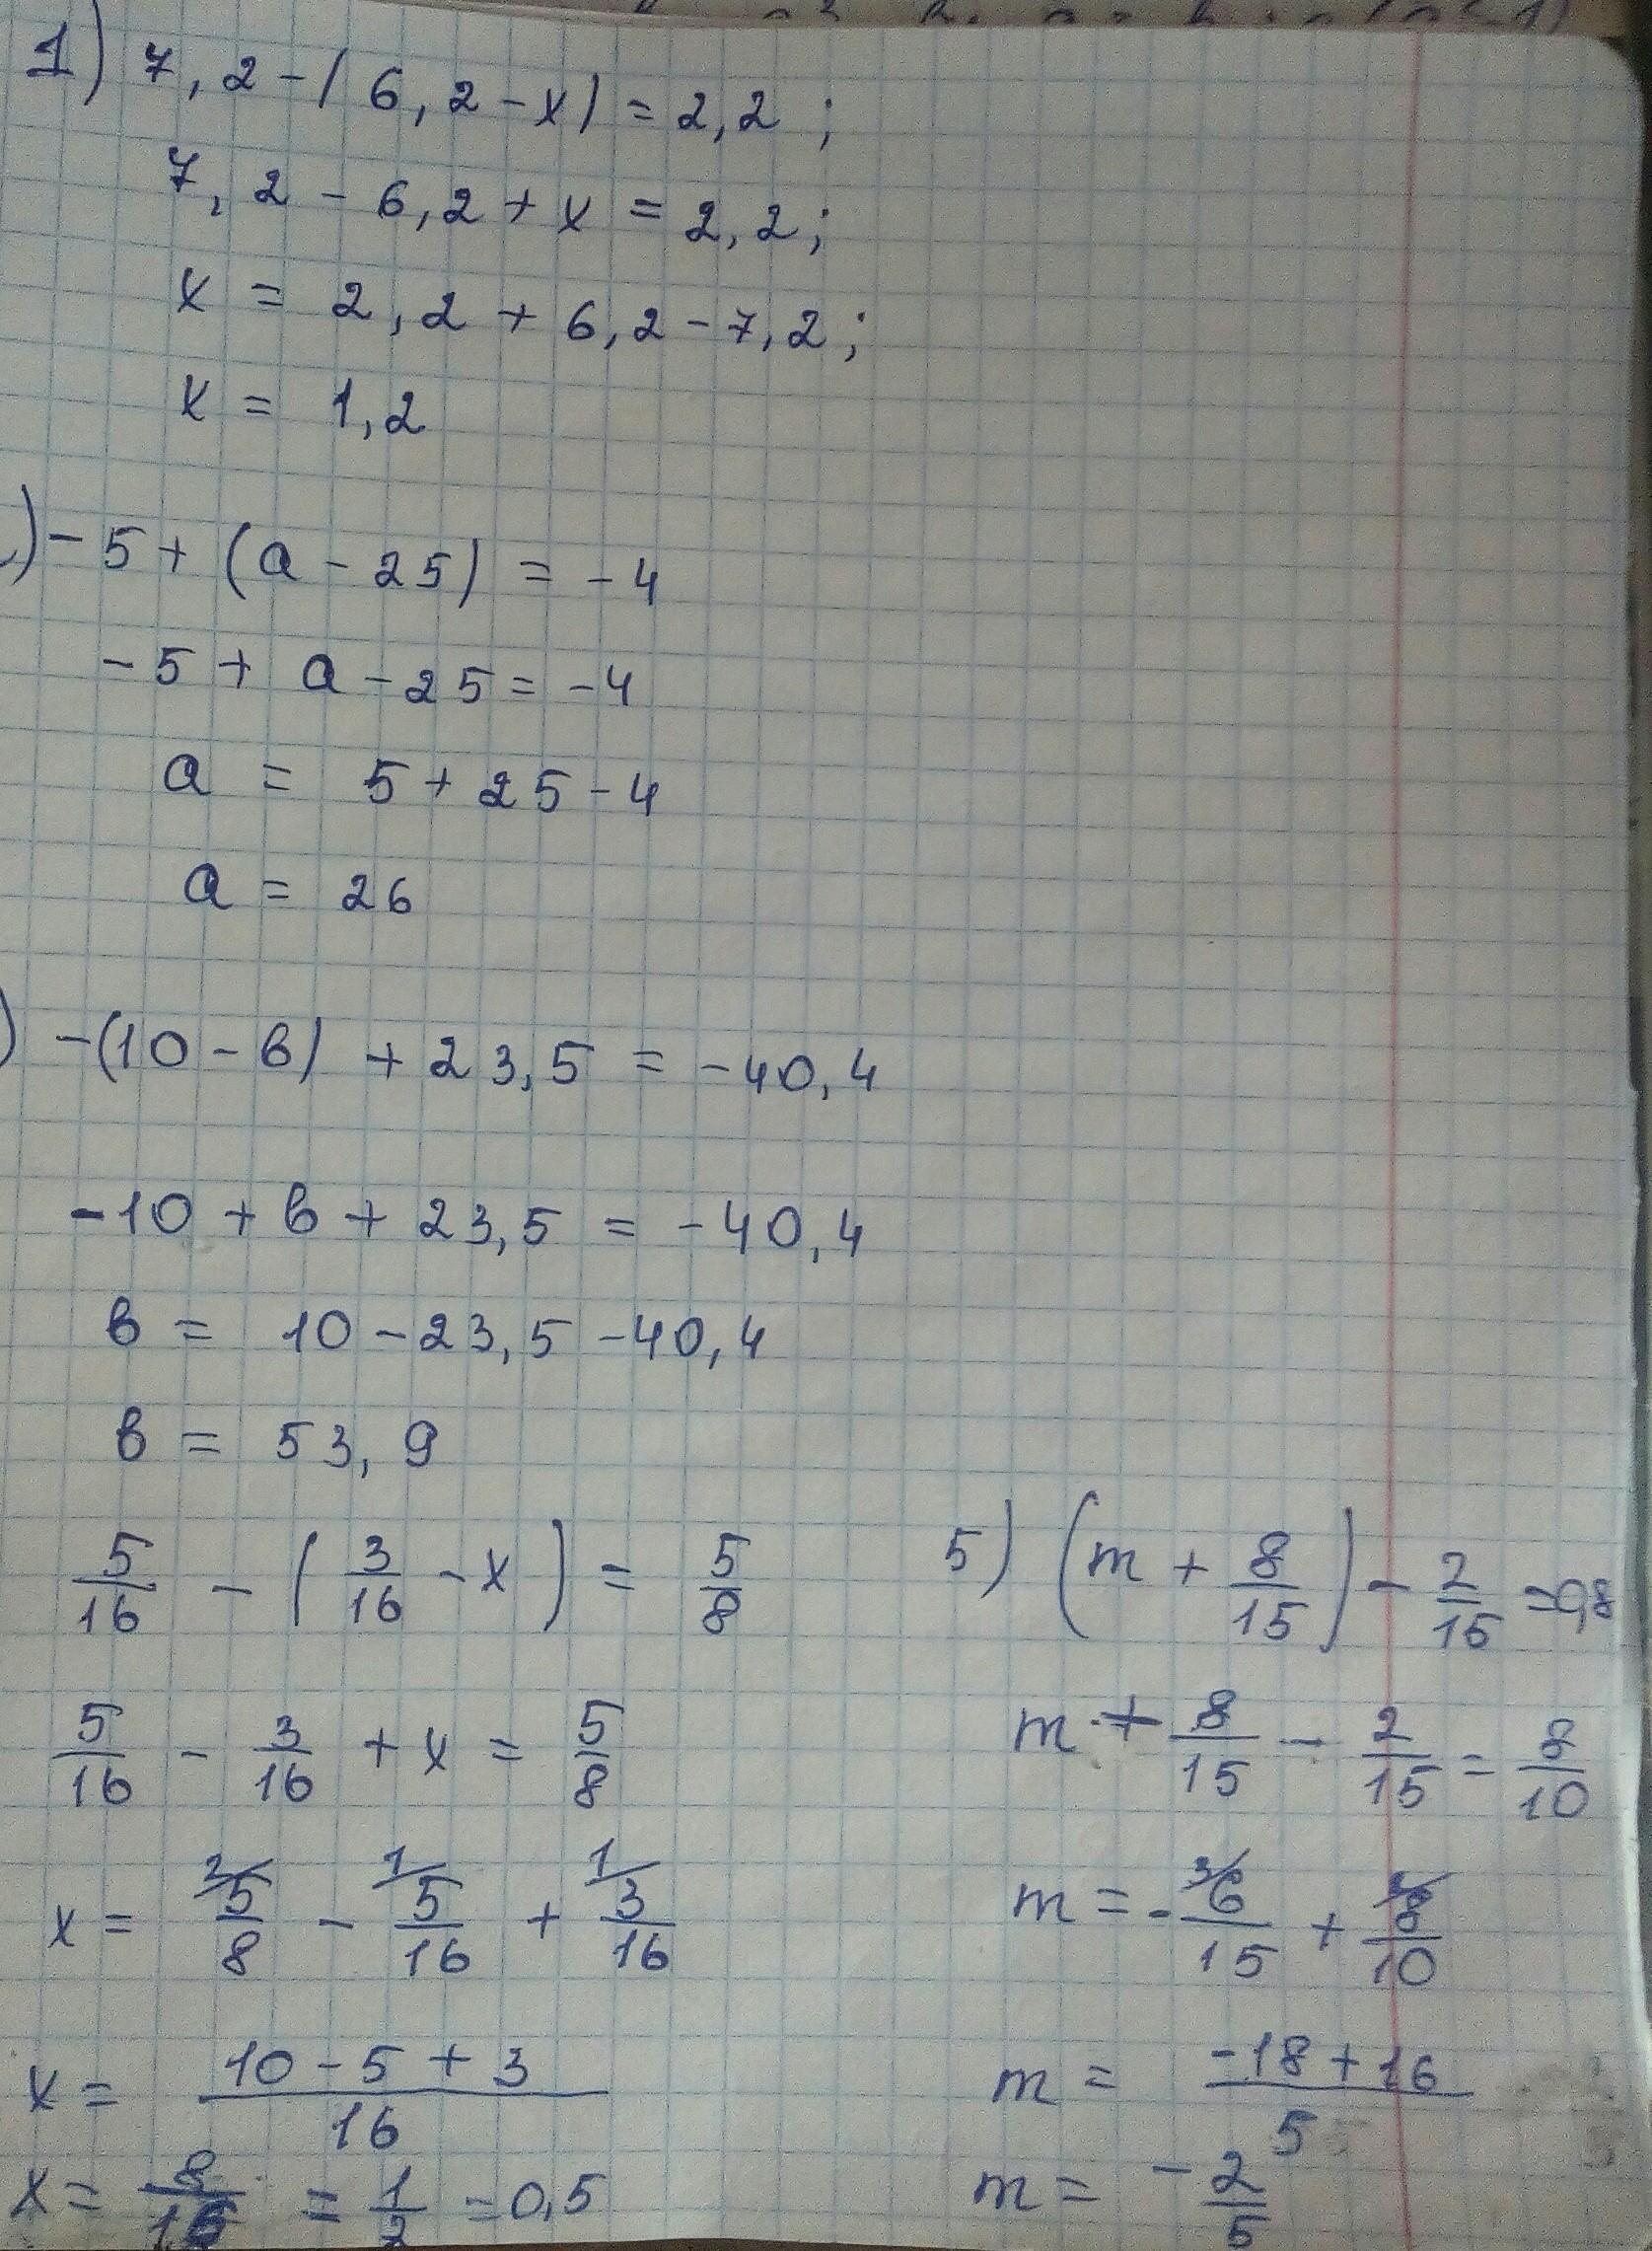 1) 7,2 - (6,2 - x) = 2,2 ;
7,2 - 6,2 + x = 2,2 ;
x = 2,2 + 6,2 - 7,2 ;
x = 1,2
) - 5 + (a - 25) = - 4
- 5 + a - 25 = - 4
a = 5 + 25 - 4
a = 26
) - (10 - в) + 23,5 = - 40,4
- 10 + в + 23,5 = - 40,4
в = 10 - 23,5 - 40,4
в = 53,9
5/16 - (3/16 - x) = 5/8
5/16 - 3/16 + x = 5/8
x = 2/ 5/8 - 1/ 5/16 + 1/ 3/16
x = (10 - 5 + 3)/16
x = 8/16 = 1/2 = 0,5
5) (m + 8/15) - 2/15 = 0,8
m + 8/15 - 2/15 = 8/10
m = - 3/ 6/15 + 8/10
m = (-18 + 16)/5
m = - 2/5